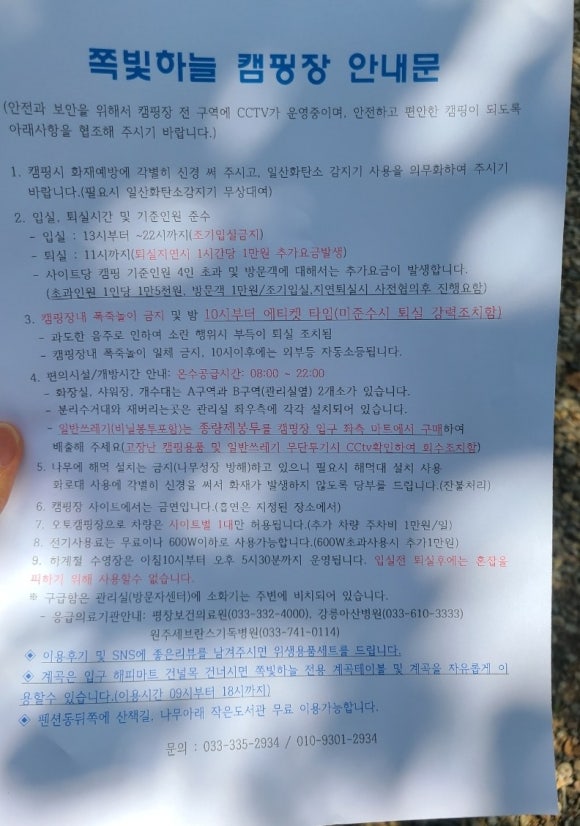 쪽빛하늘 캠핑장 안내문
(안전과 보안을 위해서 캠핑장 전 구역에 CCTV가 운영중이며, 안전하고 편안한 캠핑이 되도록
아래사항을 협조해 주시기 바랍니다.)
1. 캠핑시 화재예방에 각별히 신경 써 주시고, 일산화탄소 감지기 사용을 의무화하여 주시기
바랍니다.(필요시 일산화탄소감지기 무상대여)
2. 입실, 퇴실시간 및 기준인원 준수
- 입실 : 13시부터 ~22시까지(조기입실금지)
- 퇴실 : 11시까지(퇴실지연시 1시간당 1만원 추가요금발생)
- 사이트당 캠핑 기준인원 4인 초과 및 방문객에 대해서는 추가요금이 발생합니다.
(초과인원 1인당 1만5천원, 방문객 1만원/조기입실,지연퇴실시 사전협의후 진행요함)
3. 캠핑장내 폭죽놀이 금지 및 밤 10시부터 에티켓 타임(미준수시 퇴실 강력조치함)
- 과도한 음주로 인하여 소란 행위시 부득이 퇴실 조치됨
- 캠핑장내 폭죽놀이 일체 금지, 10시이후에는 외부등 자동소등됩니다.
4. 편의시설/개방시간 안내: 온수공급시간: 08:00 ~ 22:00
- 화장실, 샤워장, 개수대는 A구역과 B구역(관리실옆) 2개소가 있습니다.
- 분리수거대와 재버리는곳은 관리실 좌우측에 각각 설치되어 있습니다.
- 일반쓰레기(비닐봉투포함)는 종량제봉투를 캠핑장 입구 좌측 마트에서 구매하여
배출해 주세요(고장난 캠핑용품 및 일반쓰레기 무단투기시 CCtv확인하여 회수조치함)
5. 나무에 해먹 설치는 금지(나무성장 방해)하고 있으니 필요시 해먹대 설치 사용
화로대 사용에 각별히 신경을 써서 화재가 발생하지 않도록 당부를 드립니다.(잔불처리)
6. 캠핑장 사이트에서는 금면입니다.(흡연은 지정된 장소에서)
7. 오토캠핑장으로 차량은 사이트별 1대만 허용됩니다.(추가 차량 주차비 1만원/일)
8. 전기사용료는 무료이나 600W이하로 사용가능합니다.(600W초과사용시 추가1만원)
9. 하계절 수영장은 아침10시부터 오후 5시30분까지 운영됩니다. 입실전 퇴실후에는 혼잡을
피하기 위해 사용할수 없습니다.
※ 구급함은 관리실(방문자센터)에 소화기는 주변에 비치되어 있습니다.
- 응급의료기관안내: 평창보건의료원(033-332-4000), 강릉아산병원(033-610-3333)
원주세브란스기독병원(033-741-0114)
◈ 이용후기 및 SNS에 좋은리뷰를 남겨주시면 위생용품세트를 드립니다.
◈ 계곡은 입구 해피마트 건널목 건너시면 쪽빛하늘 전용 계곡테이블 및 계곡을 자유롭게 이
용할수 있습니다.(이용시간 09시부터 18시까지)
◈ 펜션동뒤쪽에 산책길, 나무아래 작은도서관 무료 이용가능합니다.
문의 : 033-335-2934 / 010-9301-2934